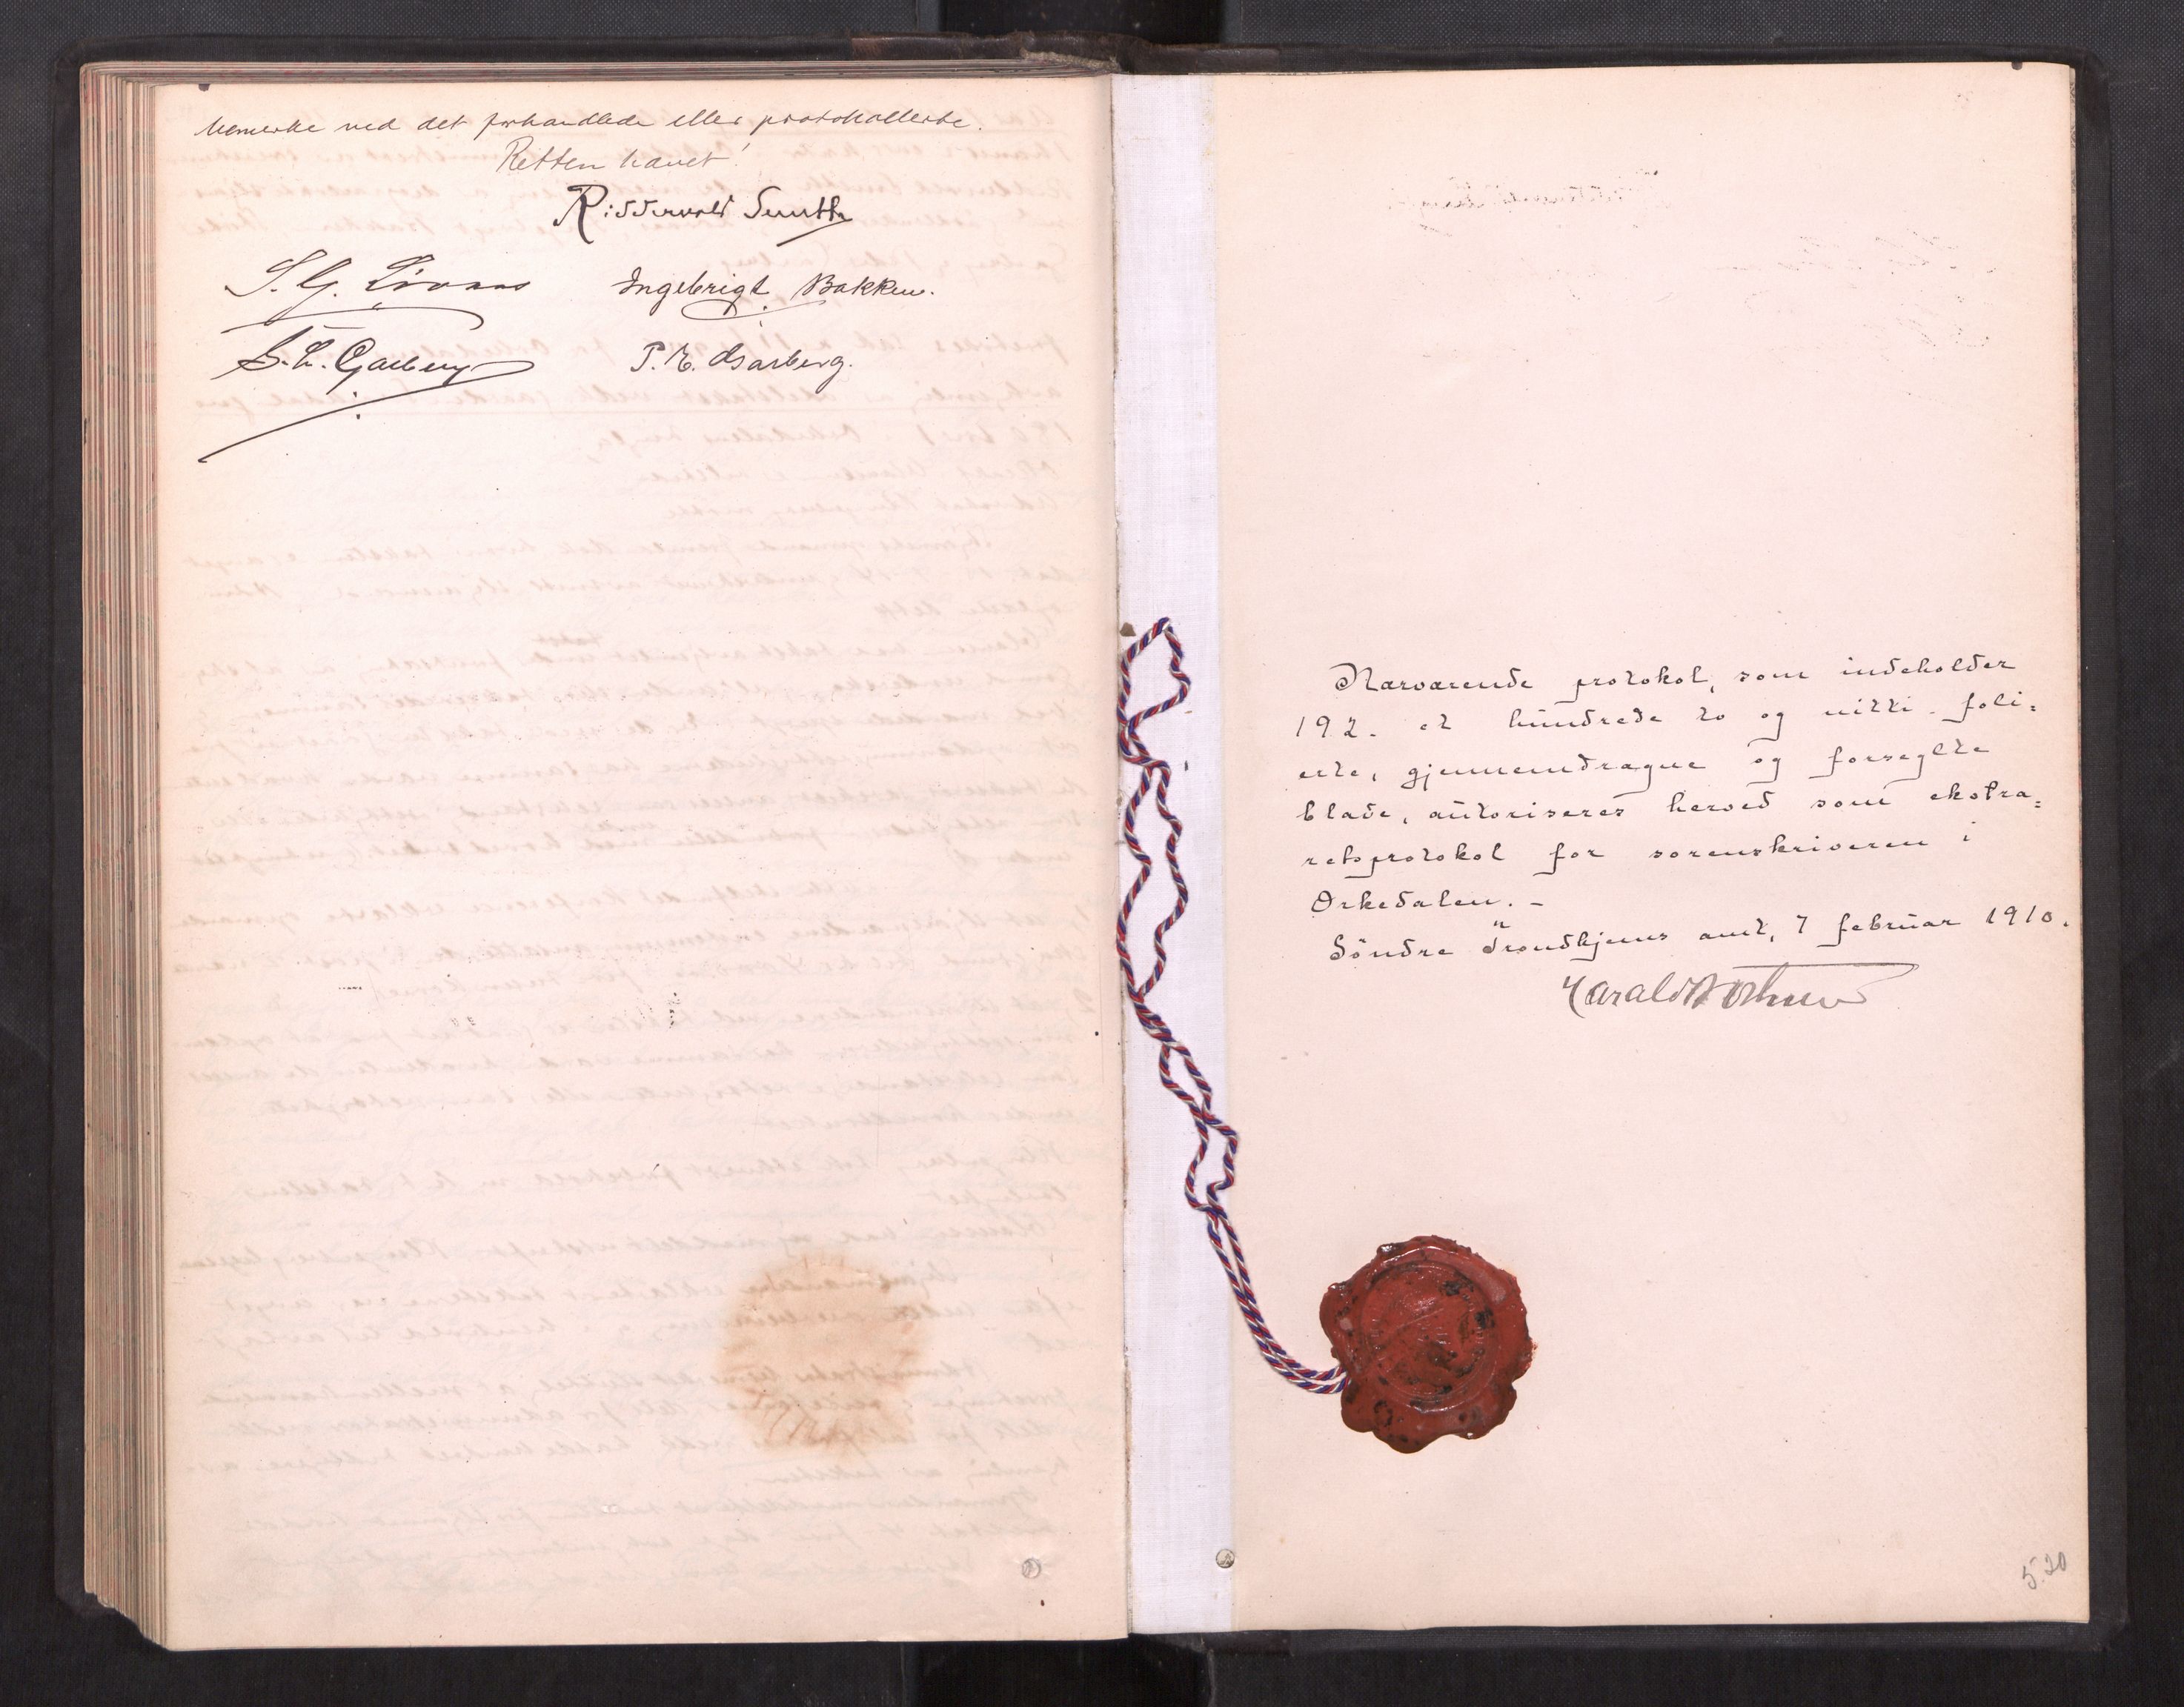 bemerke ved det forhandlede eller protokollerte.
Retten hævet!
Riddervold Smith
S. G.
Ingebrigt Bakken.
Garberg
P. E. Garberg.
Nærværende protokol, som indeholder
192. et hundrede to og nitti - foli=
erte, gjennemdragne og forseglte
blade, autoriseres herved som ekstra=
retsprotokol for sorenskriveren i
Orkedalen. -
Søndre Trondhjems amt, 7 februar 1910.
Harald Bothner
5.20